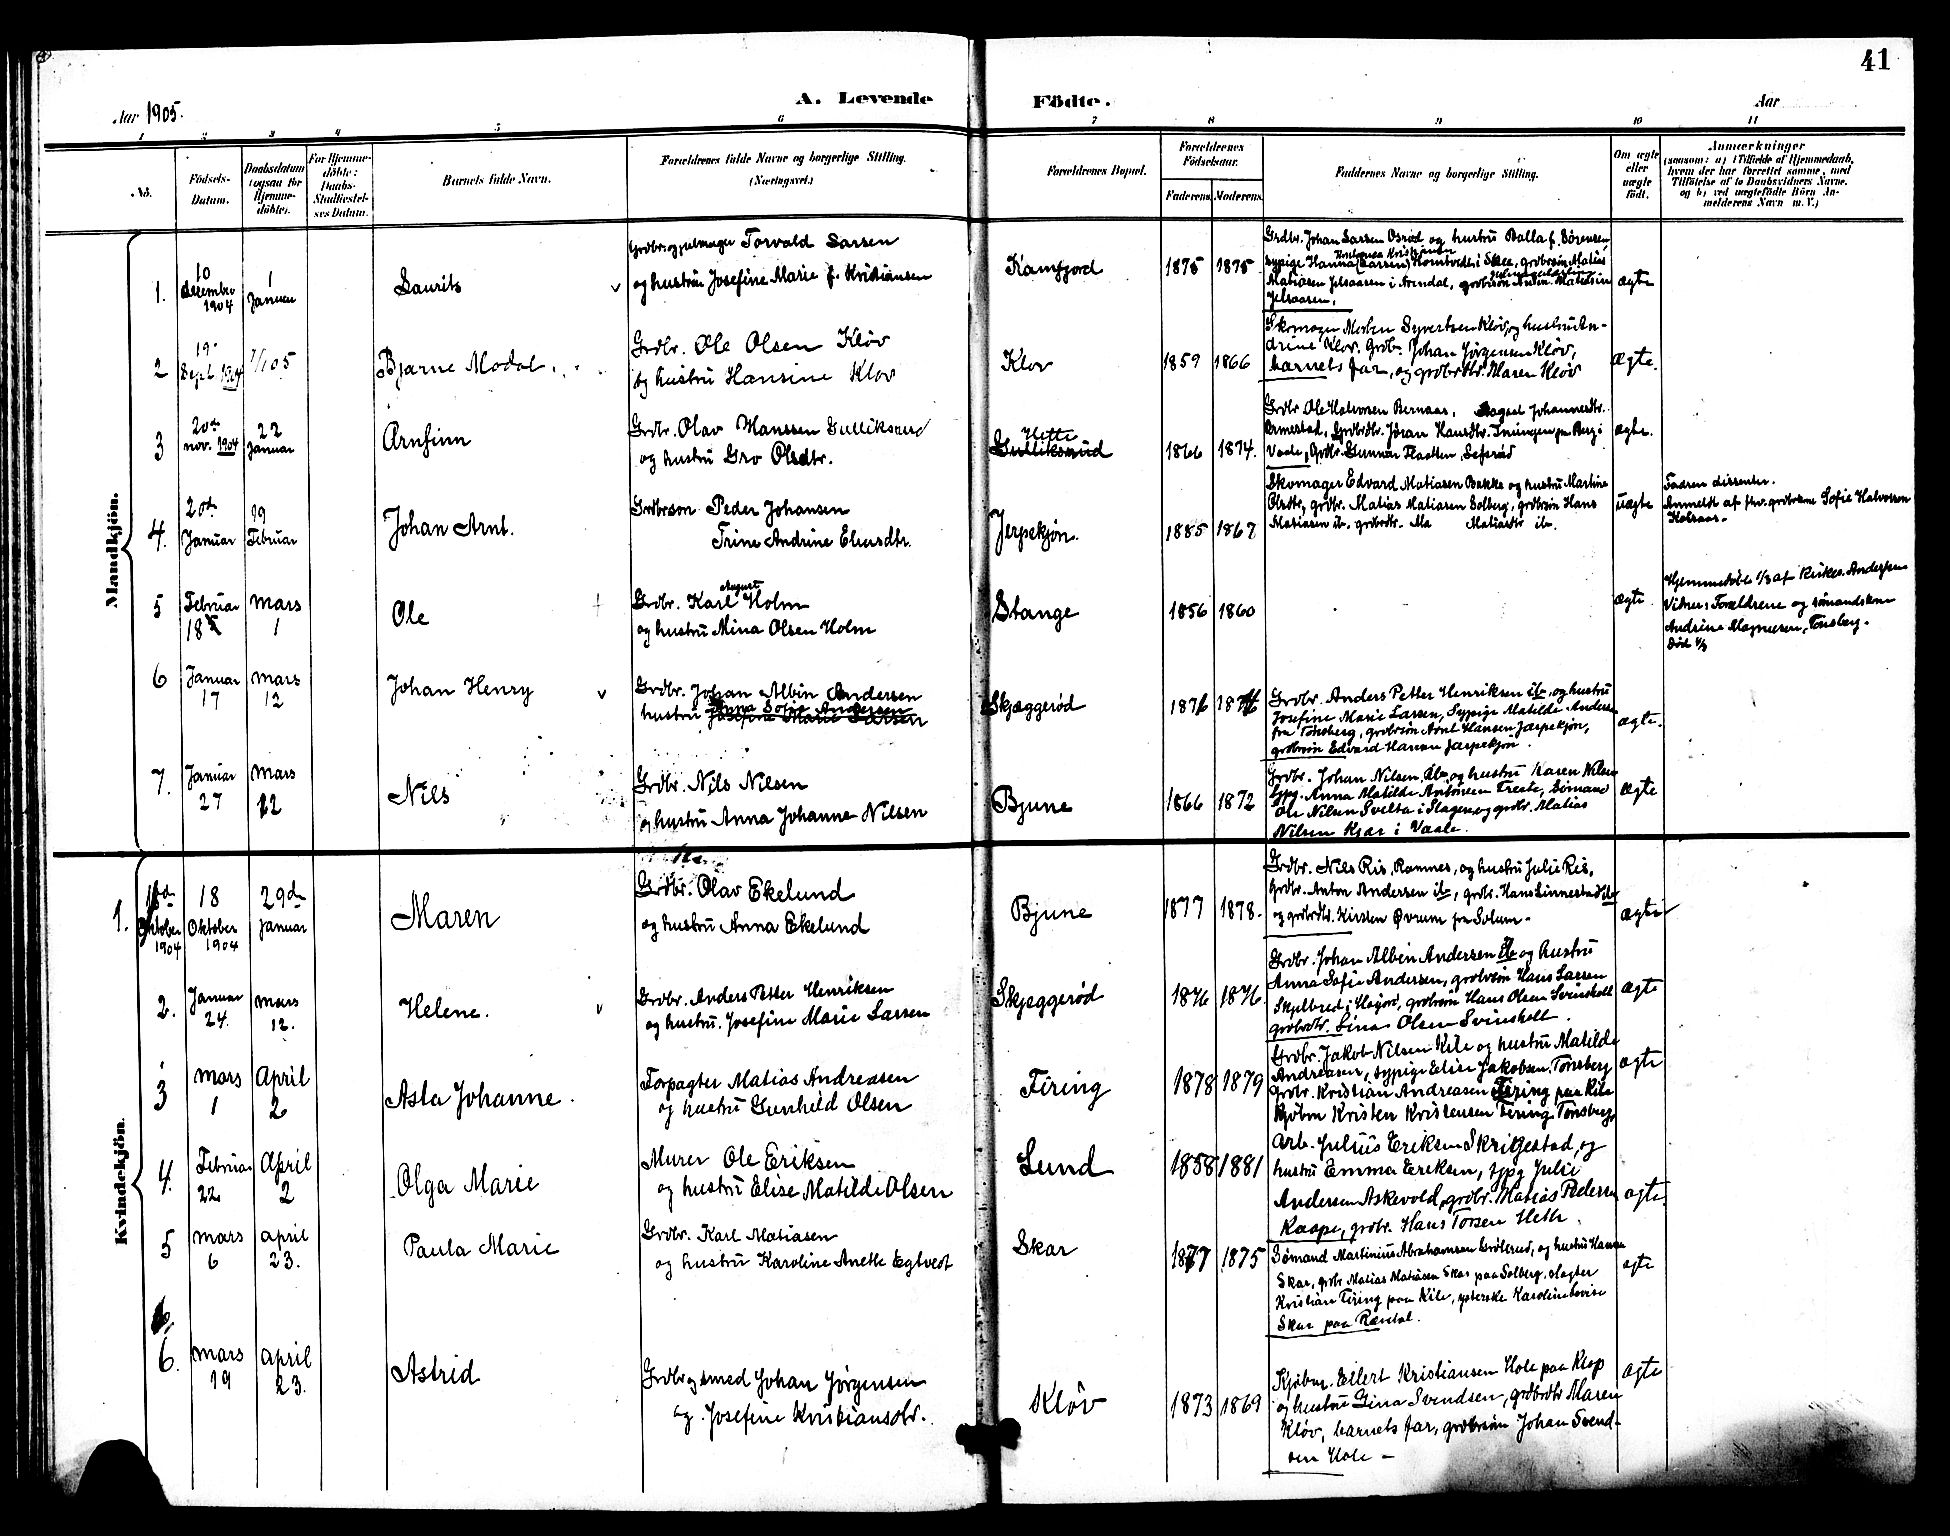 41
Aar 1905.
A. Levende Födte.
Aar
1 2 3 4 5 6 7 8 9 10 11
No.
Födsels-Datum.
Daabsdatum (ogsaa for Hjemme-döbte).
For Hjemme-döbte: Daabs-Stadfæstel-ses Datum.
Barnets fulde Navn.
Forældrenes fulde Navne og borgerlige Stilling. (Næringsvei.)
Forældrenes Bopæl.
Forældrenes Födselsaar.
Faderens. Moderens.
Faddernes Navne og borgerlige Stilling.
Om ægte eller uægte födt.
Anmærkninger
(saasom: a) i Tilfælde af Hjemmedaab, hvem der har forrettet samme, med Tilföielse af to Daabsvidners Navne, og b) ved uægtefödte Börn Anmelderens Navn m. V.)
Mandkjön.
1. 10 december 1904 1 Januar Laurits
Grdbr. og Torvald Larsen
og hustru Josefine Marie f. Kristiansen
Kamfjord 1875 1875
Grdbr. Johan Larsen Osrød og hustru Balla f. Sørensen,
sypige Hanna (Larsen) i Skee, grdbrsøn Matias
Matiasen i Arendal, grdbrsøn Anton Matisen
ægte
2 19 Sept 1904 1/1 05 Bjarne Modal
Grdbr. Ole Olsen Kløv
og hustru Hansine Kløv
Klov 1859 1866
Skomager Morten Syvertsen Kløv, og hustru An-
drine Kløv. Grdb. Johan Jørgensen Kløv,
barnets far, og grdbrdtr. Maren Kløv
ægte.
3 20de nov. 1904 22 Januar Arnfinn
Grdbr. Olav Hanssen Gulliksrud
og hustru Gro Olsdtr.
Gulliksrud 1866 1874.
Grdbr Ole Halvorsen Bernaas, Aagaat Johannesdtr.
Ormestad, Grdbrdtr. Jøran Hansdtr. paa Berg i
Vaale, Grdbr. Gunnar Flaatten, Sefsrød
ægte.
4. 20de Januar 19 Februar Johan Arnt.
Grdbrsøn Peder Johansen
Trine Andrine Elversdtr.
Jerpekjøn. 1885 1867
Skomager Edvard Matiasen Bakke og hustru Martine
Olsdtr, grdbr. Matias Matiasen Solberg, grdbrsøn Hans
Matiasen ib. grdbrdtr. Ma Matiasdtr ib.
uægte
Faaren dissenter.
Anmeldt af grdbrkone Sofie Halvorsen
5 Februar 18 mars 1 Ole
Grdbr. Karl August Holm
og hustru Mina Olsen Holm
Stange 1856 1860
ægte
Hjemmedøbt 1/3 af Andersen
Vitner: Forældrene og sømandskone
Andrine Magnussen, Tønsberg.
Død
6 Januar 17 mars 12 Johan Henry
Grdbr. Johan Albin Andersen
Anna Sofie Andersen
hustru Josefine Marie Larsen
Skjæggerød 1876 1876
Grdbr. Anders Petter Henriksen ib, og hustru
Josefine Marie Larsen, Sypige Matilde Andersen
fra Tønsberg, grdbrsøn Arnt Hansen Jarpekjøn,
grdbrsøn Edvard Hansen Jarpekjøn.
ægte.
7. Januar 27 mars 12 Nils
Grdbr. Nils Nilsen
og hustru Anna Johanne Nilsen
Bjune 1866 1872
Grdbr. Johan Nilsen ib, og hustru Karen Nilsen
sypg. Anna Matilde Antonsen Treste, Sømand
Ole Nilsen Svelta i Slagen, og grdbr. Matias
Nilsen Kjær i Vaale.
ægte
Kvindekjön.
1. Oktober 1904 18 Oktober 1904 29de Januar Maren
Grdbr. Olav Ekelund
og hustru Anna Ekelund
Bjune 1877 1878.
Grdbr. Nils Ris, Ramnes, og hustru Julie Ris,
Grdbr. Anton Andersen ib, grdbr. Hans Linnestad ib
og grdbrdtr. Kirsten Øvrum fra Solum.
ægte
2. Januar 24. mars 12. Helene.
Grdbr. Anders Petter Henriksen
og hustru. Josefine Marie Larsen
Skjeggerød 1876 1876
Grdbr. Johan Albin Andersen ib og hustru
Anna Sofie Andersen, grdbrsøn Hans Larsen
Skjelbred i Høijord, grdbrsøn Hans Olsen Svinsholt
grdbrdtr. Lina Olsen Svinsholt.
ægte
3 mars 1 April 2 Asta Johanne.
Forpagter Matias Andreasen
og hustru Gunhild Olsen
Firing 1878 1879
Grdbr. Jakob Nilsen Kile og hustru Matilde
Andreasen, sypige Elise Jakobsen. Tønsberg
Grdbr. Kristian Andreasen Firing paa Kile
Kjøbm Kristen Kristensen Firing Tønsberg
ægte
4. Februar 22 April 2 Olga Marie
Murer Ole Eriksen
og hustru Elise Matilde Olsen
Lund 1858 1881
Arb. Julius Eriksen Skrigestad, og
hustru Emma Eriksen, sypg Julie
Andersen Askevold, grdbr. Matias Pedersen
Kaape, grdbr. Hans Torsen Heth.
ægte
5 mars 6 april 23. Paula Marie
Grdbr. Karl Matiasen
og hustru Karoline Anette Egtvedt
Skar 1877 1875
Sømand Martinius Abrahamsen Grøterud, og hustru Hanna
Skar, grdbr Matias Matiasen Skar paa Solberg, slagter
Kristian Firing paa Kile, Karoline Lovise
Skar paa Ramdal.
ægte
6. mars 19 april 23. Astrid
Grdbr og smed Johan Jørgensen
og Josefine Kristiansdtr.
Kløv 1873 1869
Kjøbm. Eilert Kristiansen Hole paa Klop
og hustru Gina Svendsen, grdbrdtr Maren
Kløv, barnets far, grdbrsøn Johan Svend-
sen Hole -
ægte